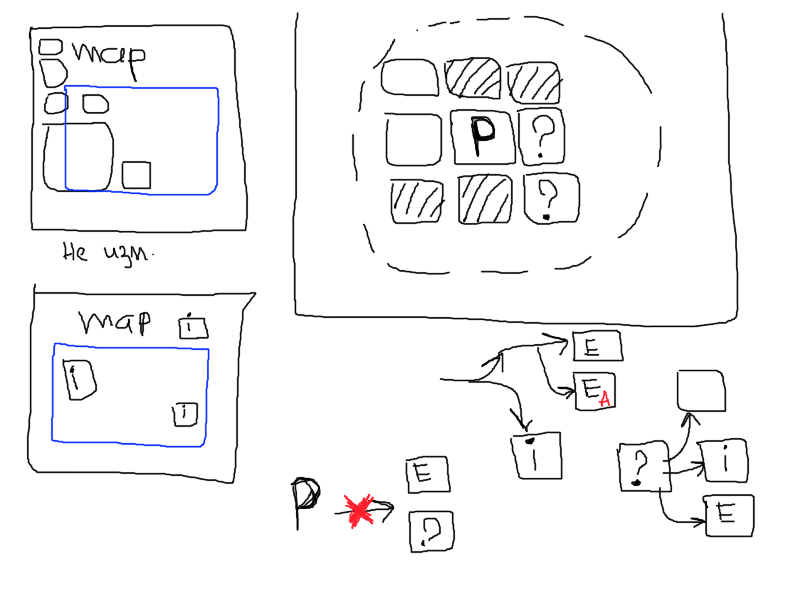 map
P ?
?
Не изм.
map i
i
i
E
E A
i
? i
E
P E
?